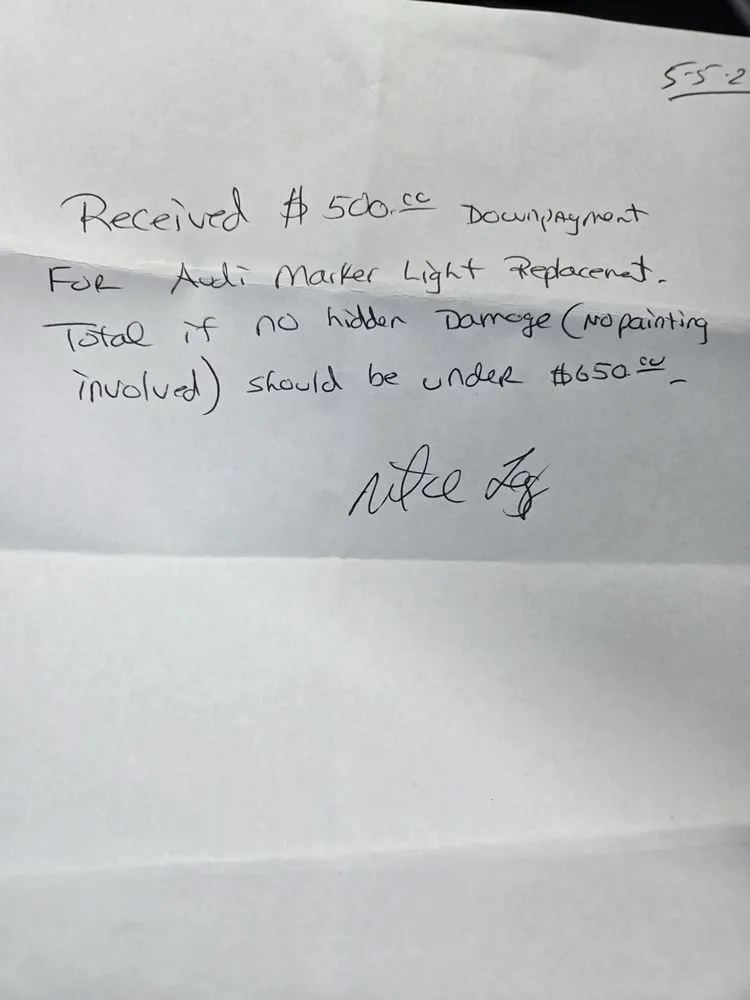 5-5-2
Received $500.00 Downpayment
For Audi Marker Light Replacenet.
Total if no hidden Damage (No painting
involved) should be under $650.00